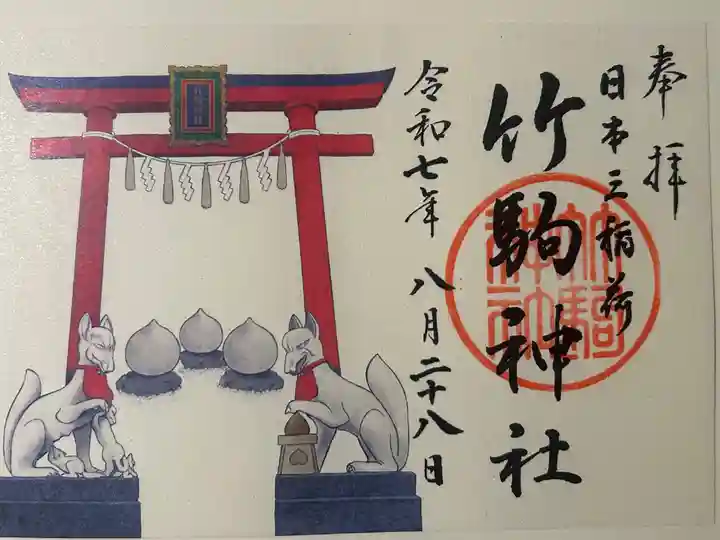 奉拝
日本三稲荷
竹駒神社
令和七年 八月二十八日
竹駒神社